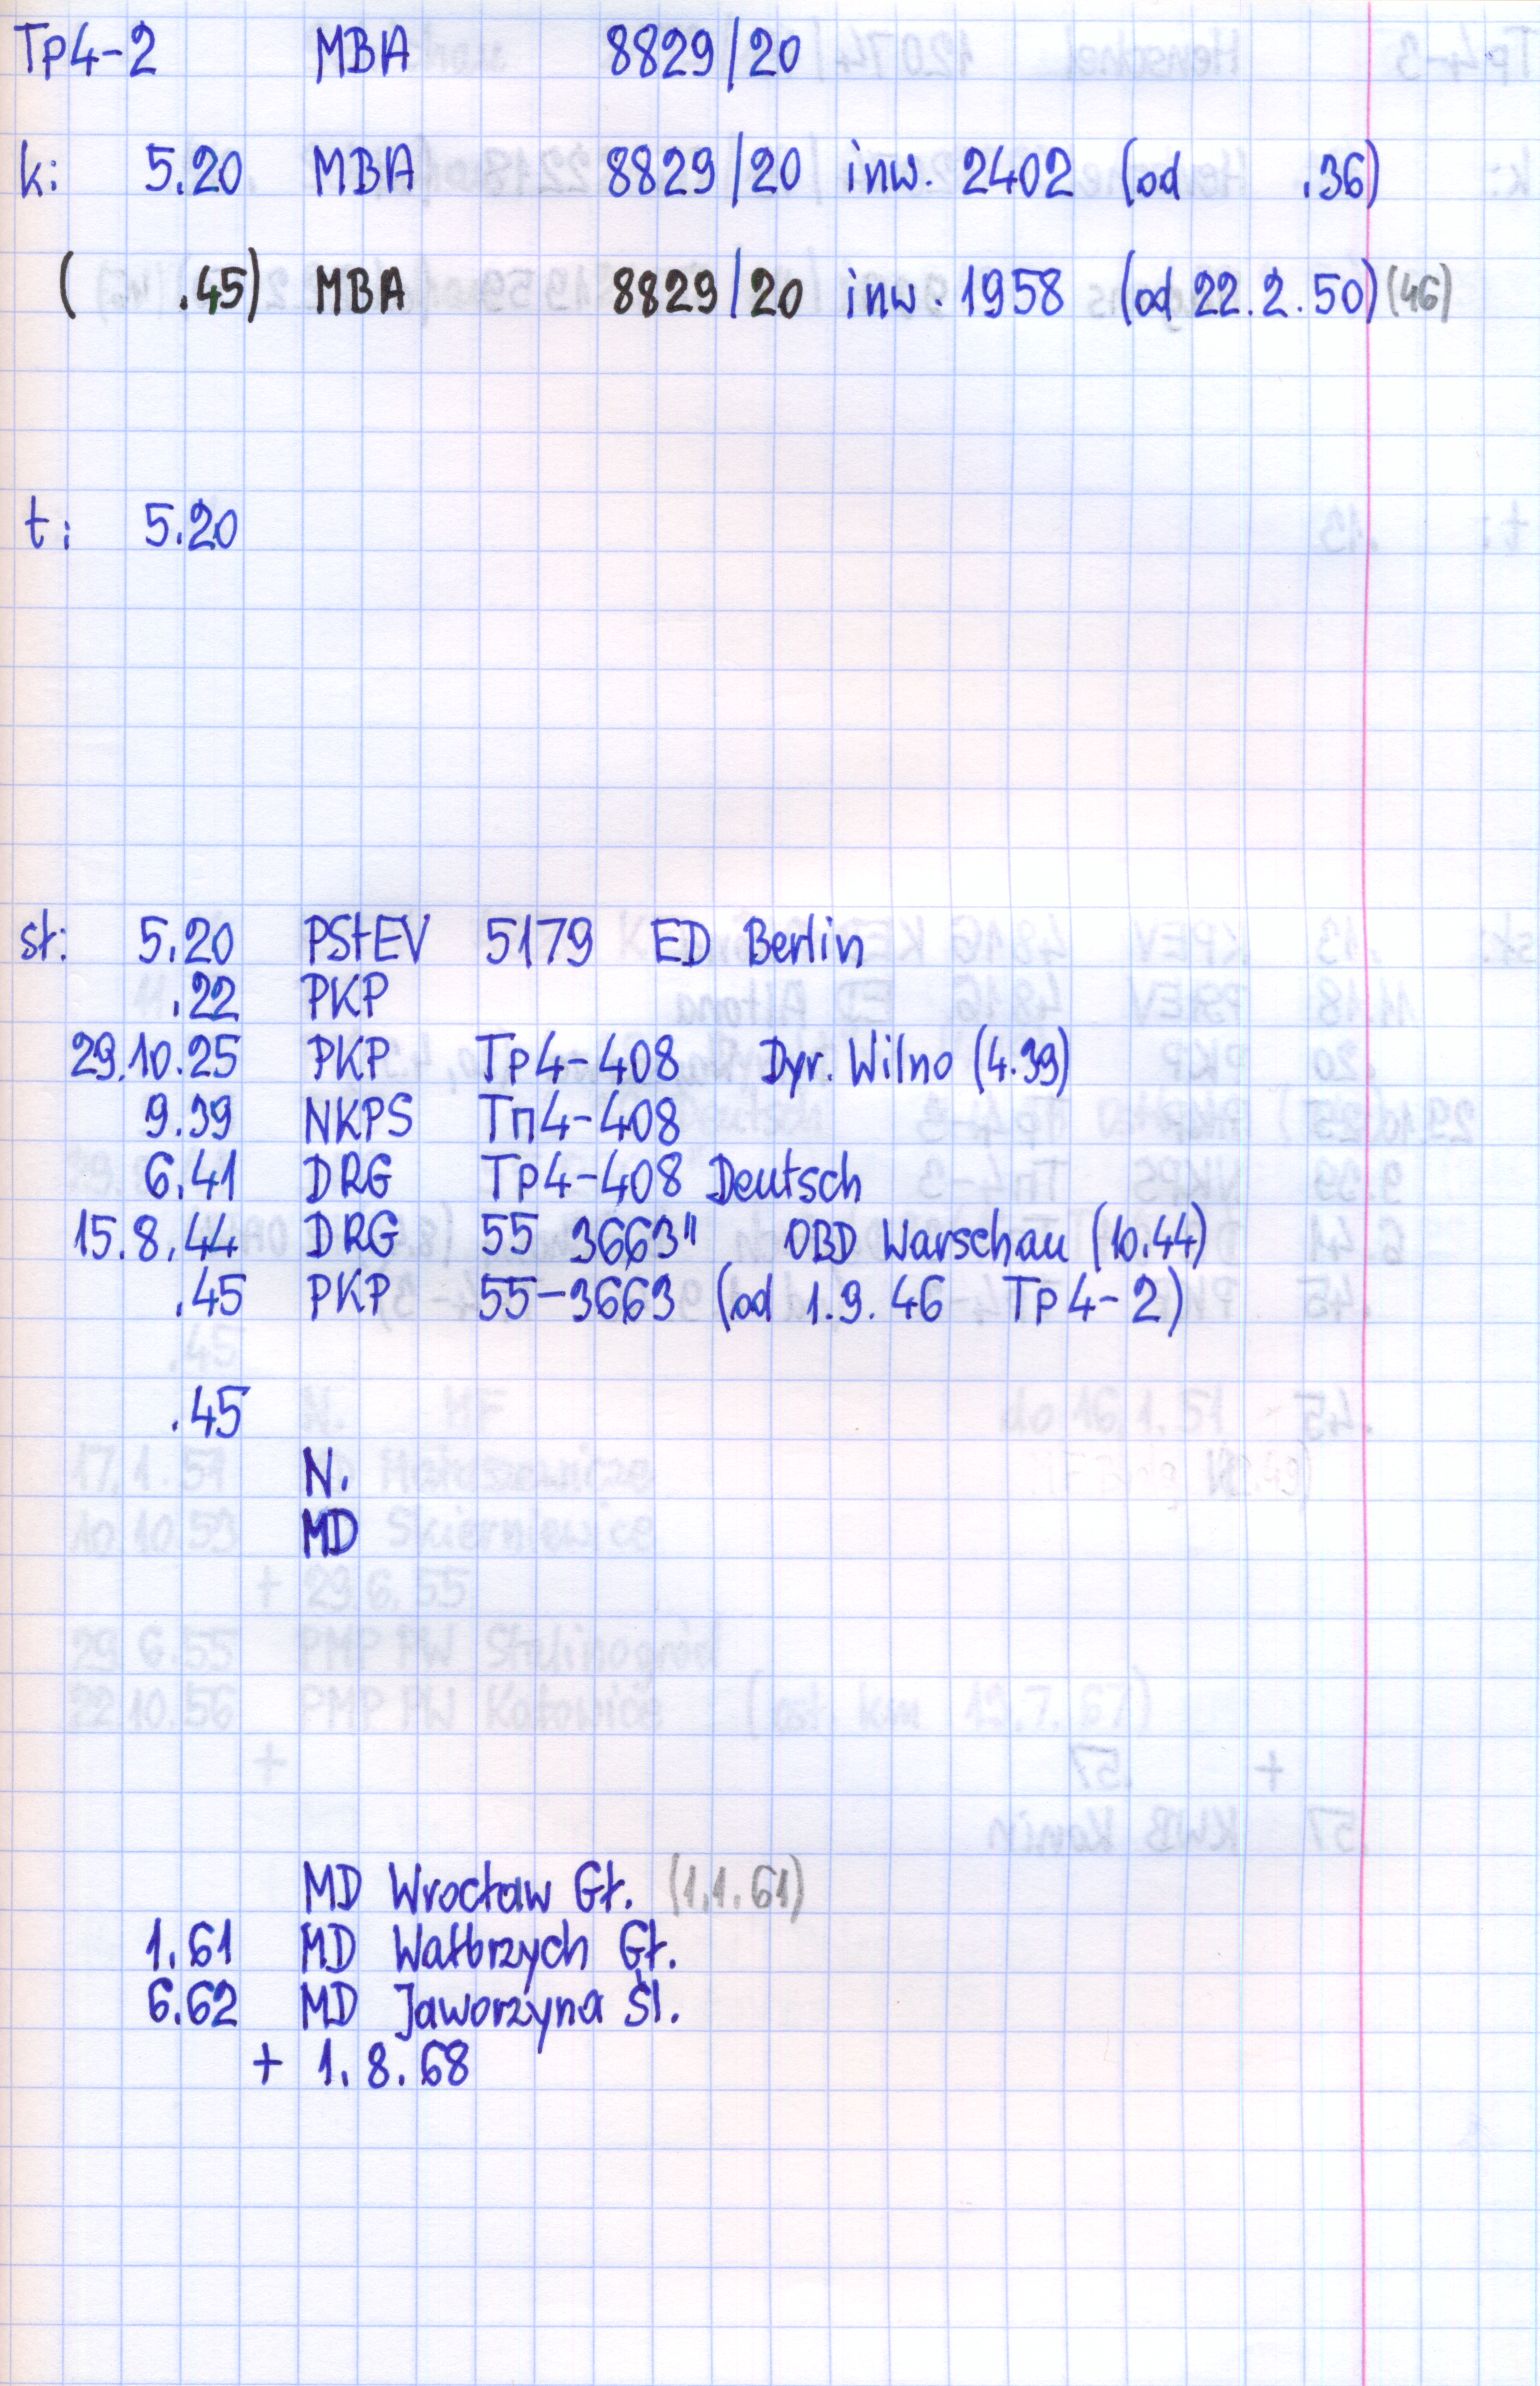 Tp4-2 MBA 8829/20
k: 5.20 MBA 8829/20 inw. 2402 (od .36)
( .45) MBA 8829/20 inw. 1958 (od 22.2.50) (46)
t: 5.20
st: 5.20 PStEV 5179 ED Berlin
.22 PKP
29.10.25 PKP Tp4-408 Dyr. Wilno (4.39)
9.39 NKPS Тп4-408
6.41 DRG Tp4-408 Deutsch
15.8.44 DRG 55 3663" OBD Warschau (10.44)
.45 PKP 55-3663 (od 1.9.46 Tp4-2)
.45
N.
MD
MD Wrocław Gł. (1.1.61)
1.61 MD Wałbrzych Gł.
6.62 MD Jaworzyna Śl.
+ 1.8.68